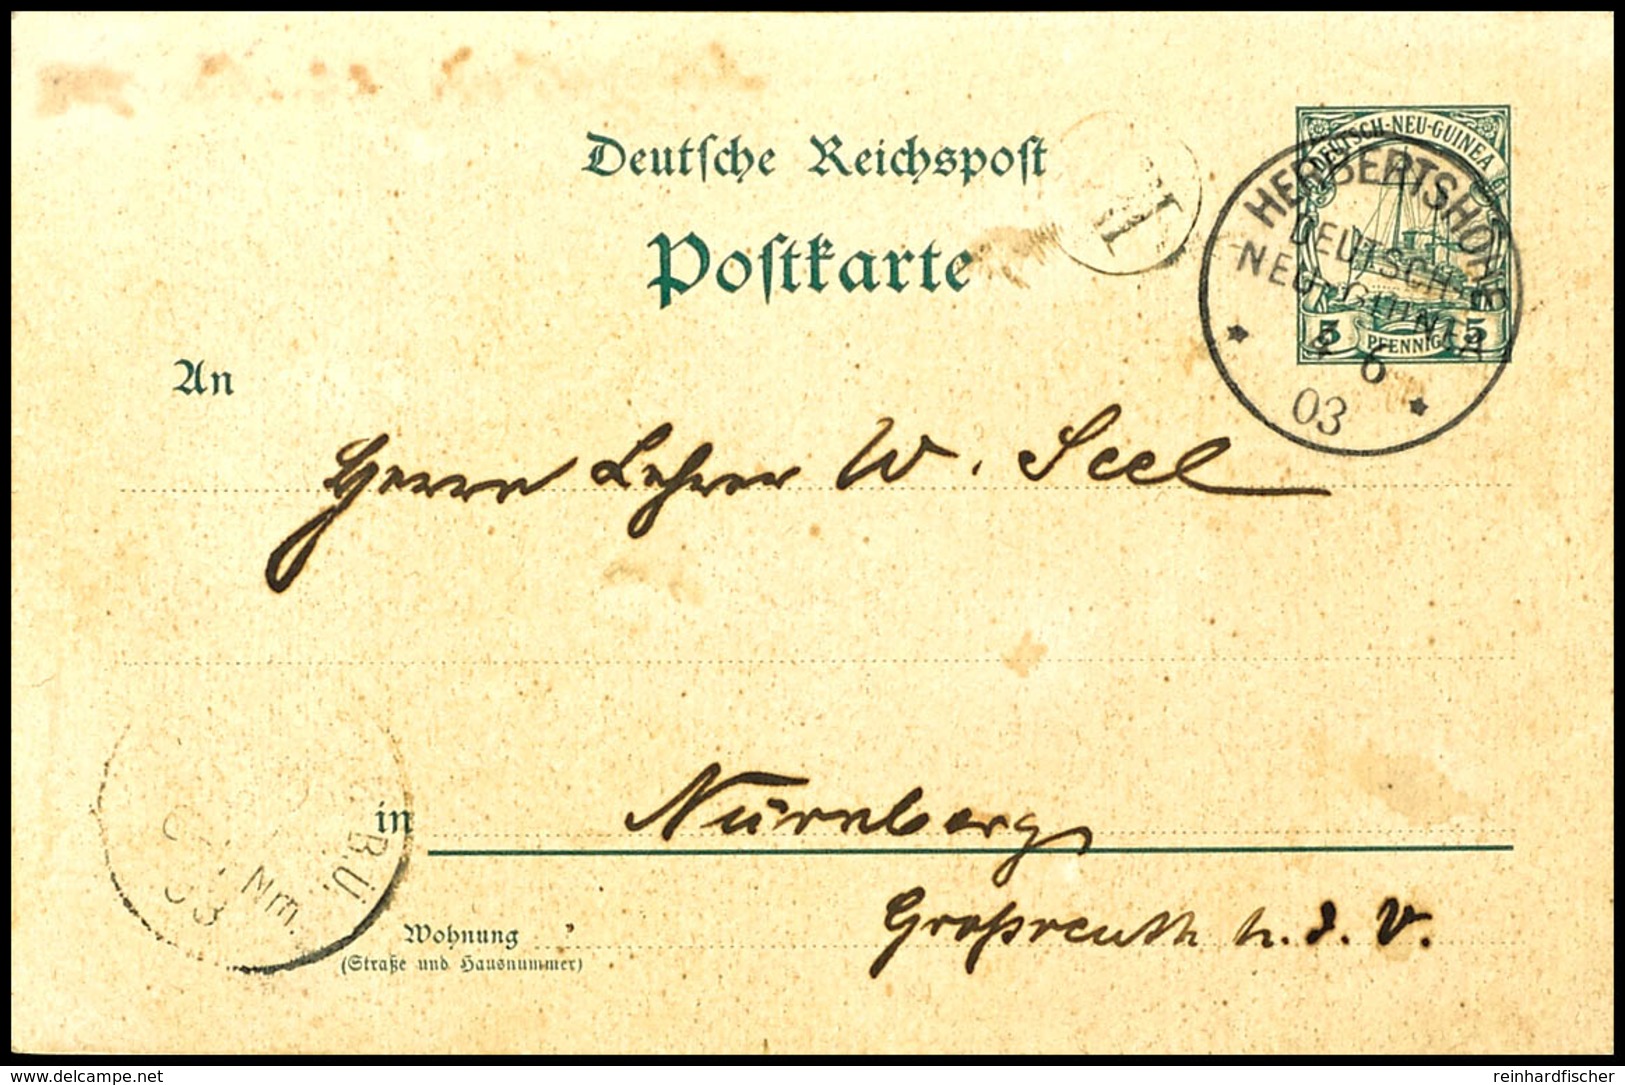 Deutsche Reichspost
Postkarte
DEUTSCH-NEU-GUINEA
5 PFENNIG 5
HERBERTSHÖHE
DEUTSCH-
NEU-GUINEA
6
03
An
Herrn Lehrer W. Seel
in Nürnberg
Großreuth h. d. V.
Wohnung
(Straße und Hausnummer)
B.Ü.
Nm.
03
delcampe.net
reinhardfischer